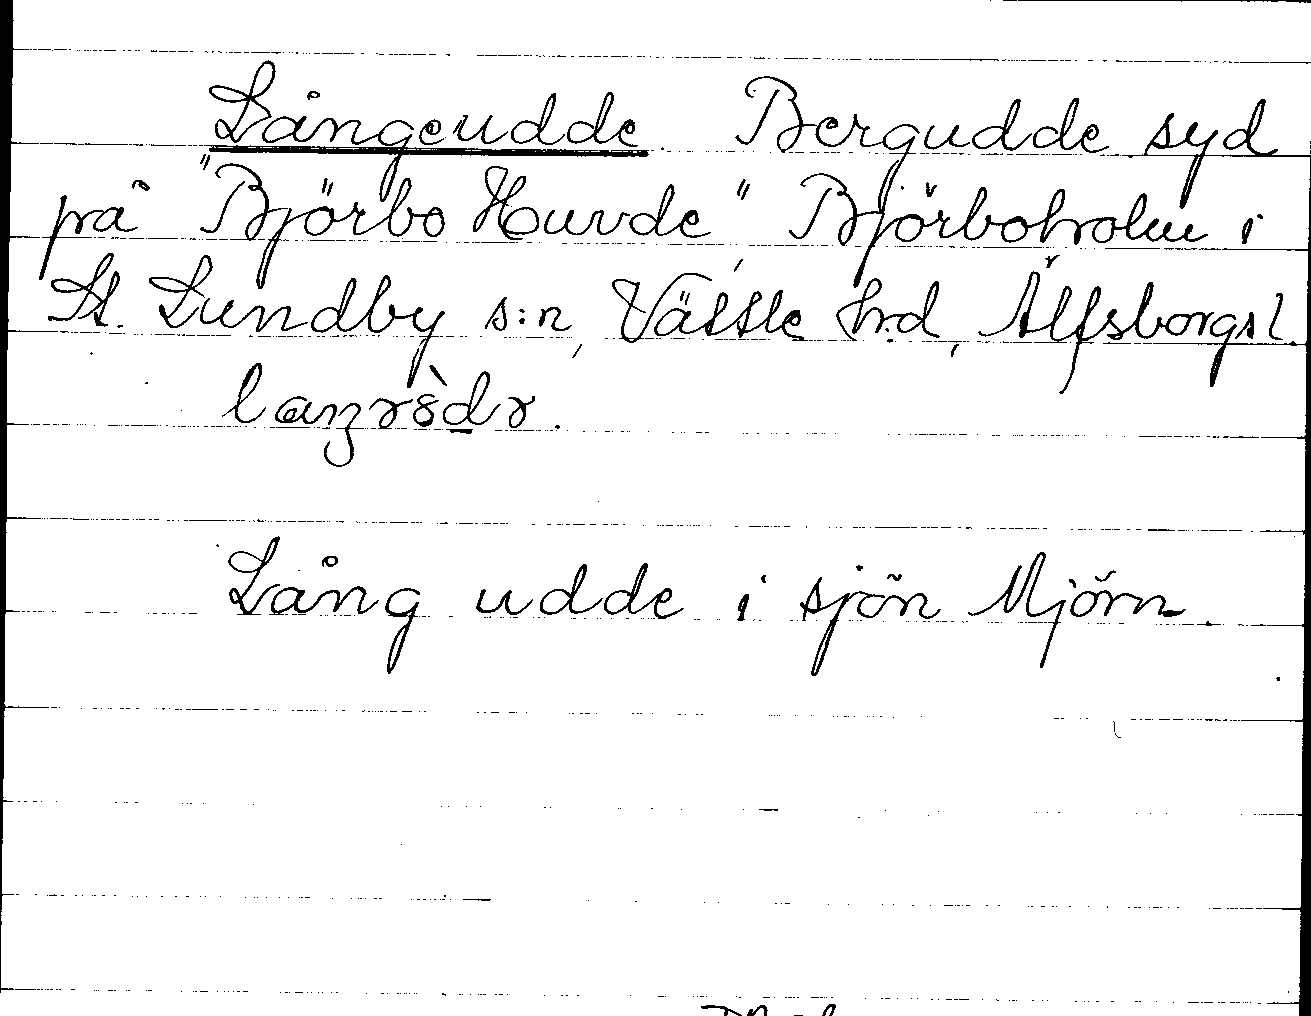 Långeudde Bergudde syd
på "Björbo Huvde" Björboholm i
St. Lundby s:n, Vättle h:d, Älfsborgs l.
Lång udde i sjön Mjörn.